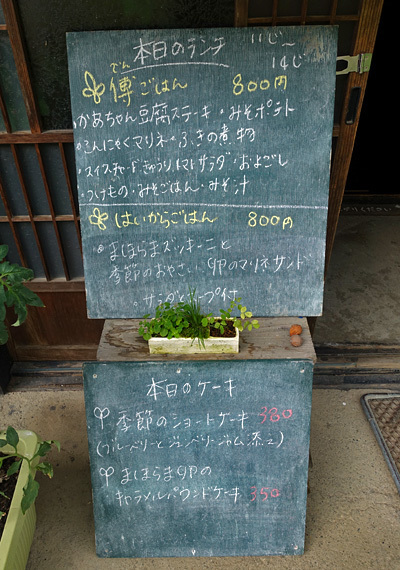 本日のランチ 11じ〜14じ
傳ごはん 800円
でん
・かあちゃん豆腐ステーキ・みそポテト
・こんにゃくマリネ・ふきの煮物
・スイスチャードきゅうりトマトサラダ・およごし
・つけもの・みそごはん・みそ汁
はいからごはん 800円
まほらまズッキーニと
季節のおやさい 卵のマリネサンド
サラダとスープ付
本日のケーキ
季節のショートケーキ 380
(ブルーベリーとジューンベリージャム添え)
まほらま卵の
キャラメルパウンドケーキ 350